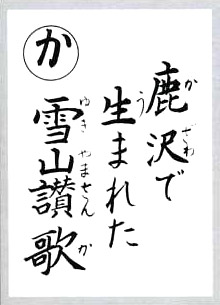 か
鹿沢で
かざわ
生まれた
う
雪山讃歌
ゆきやまさんか